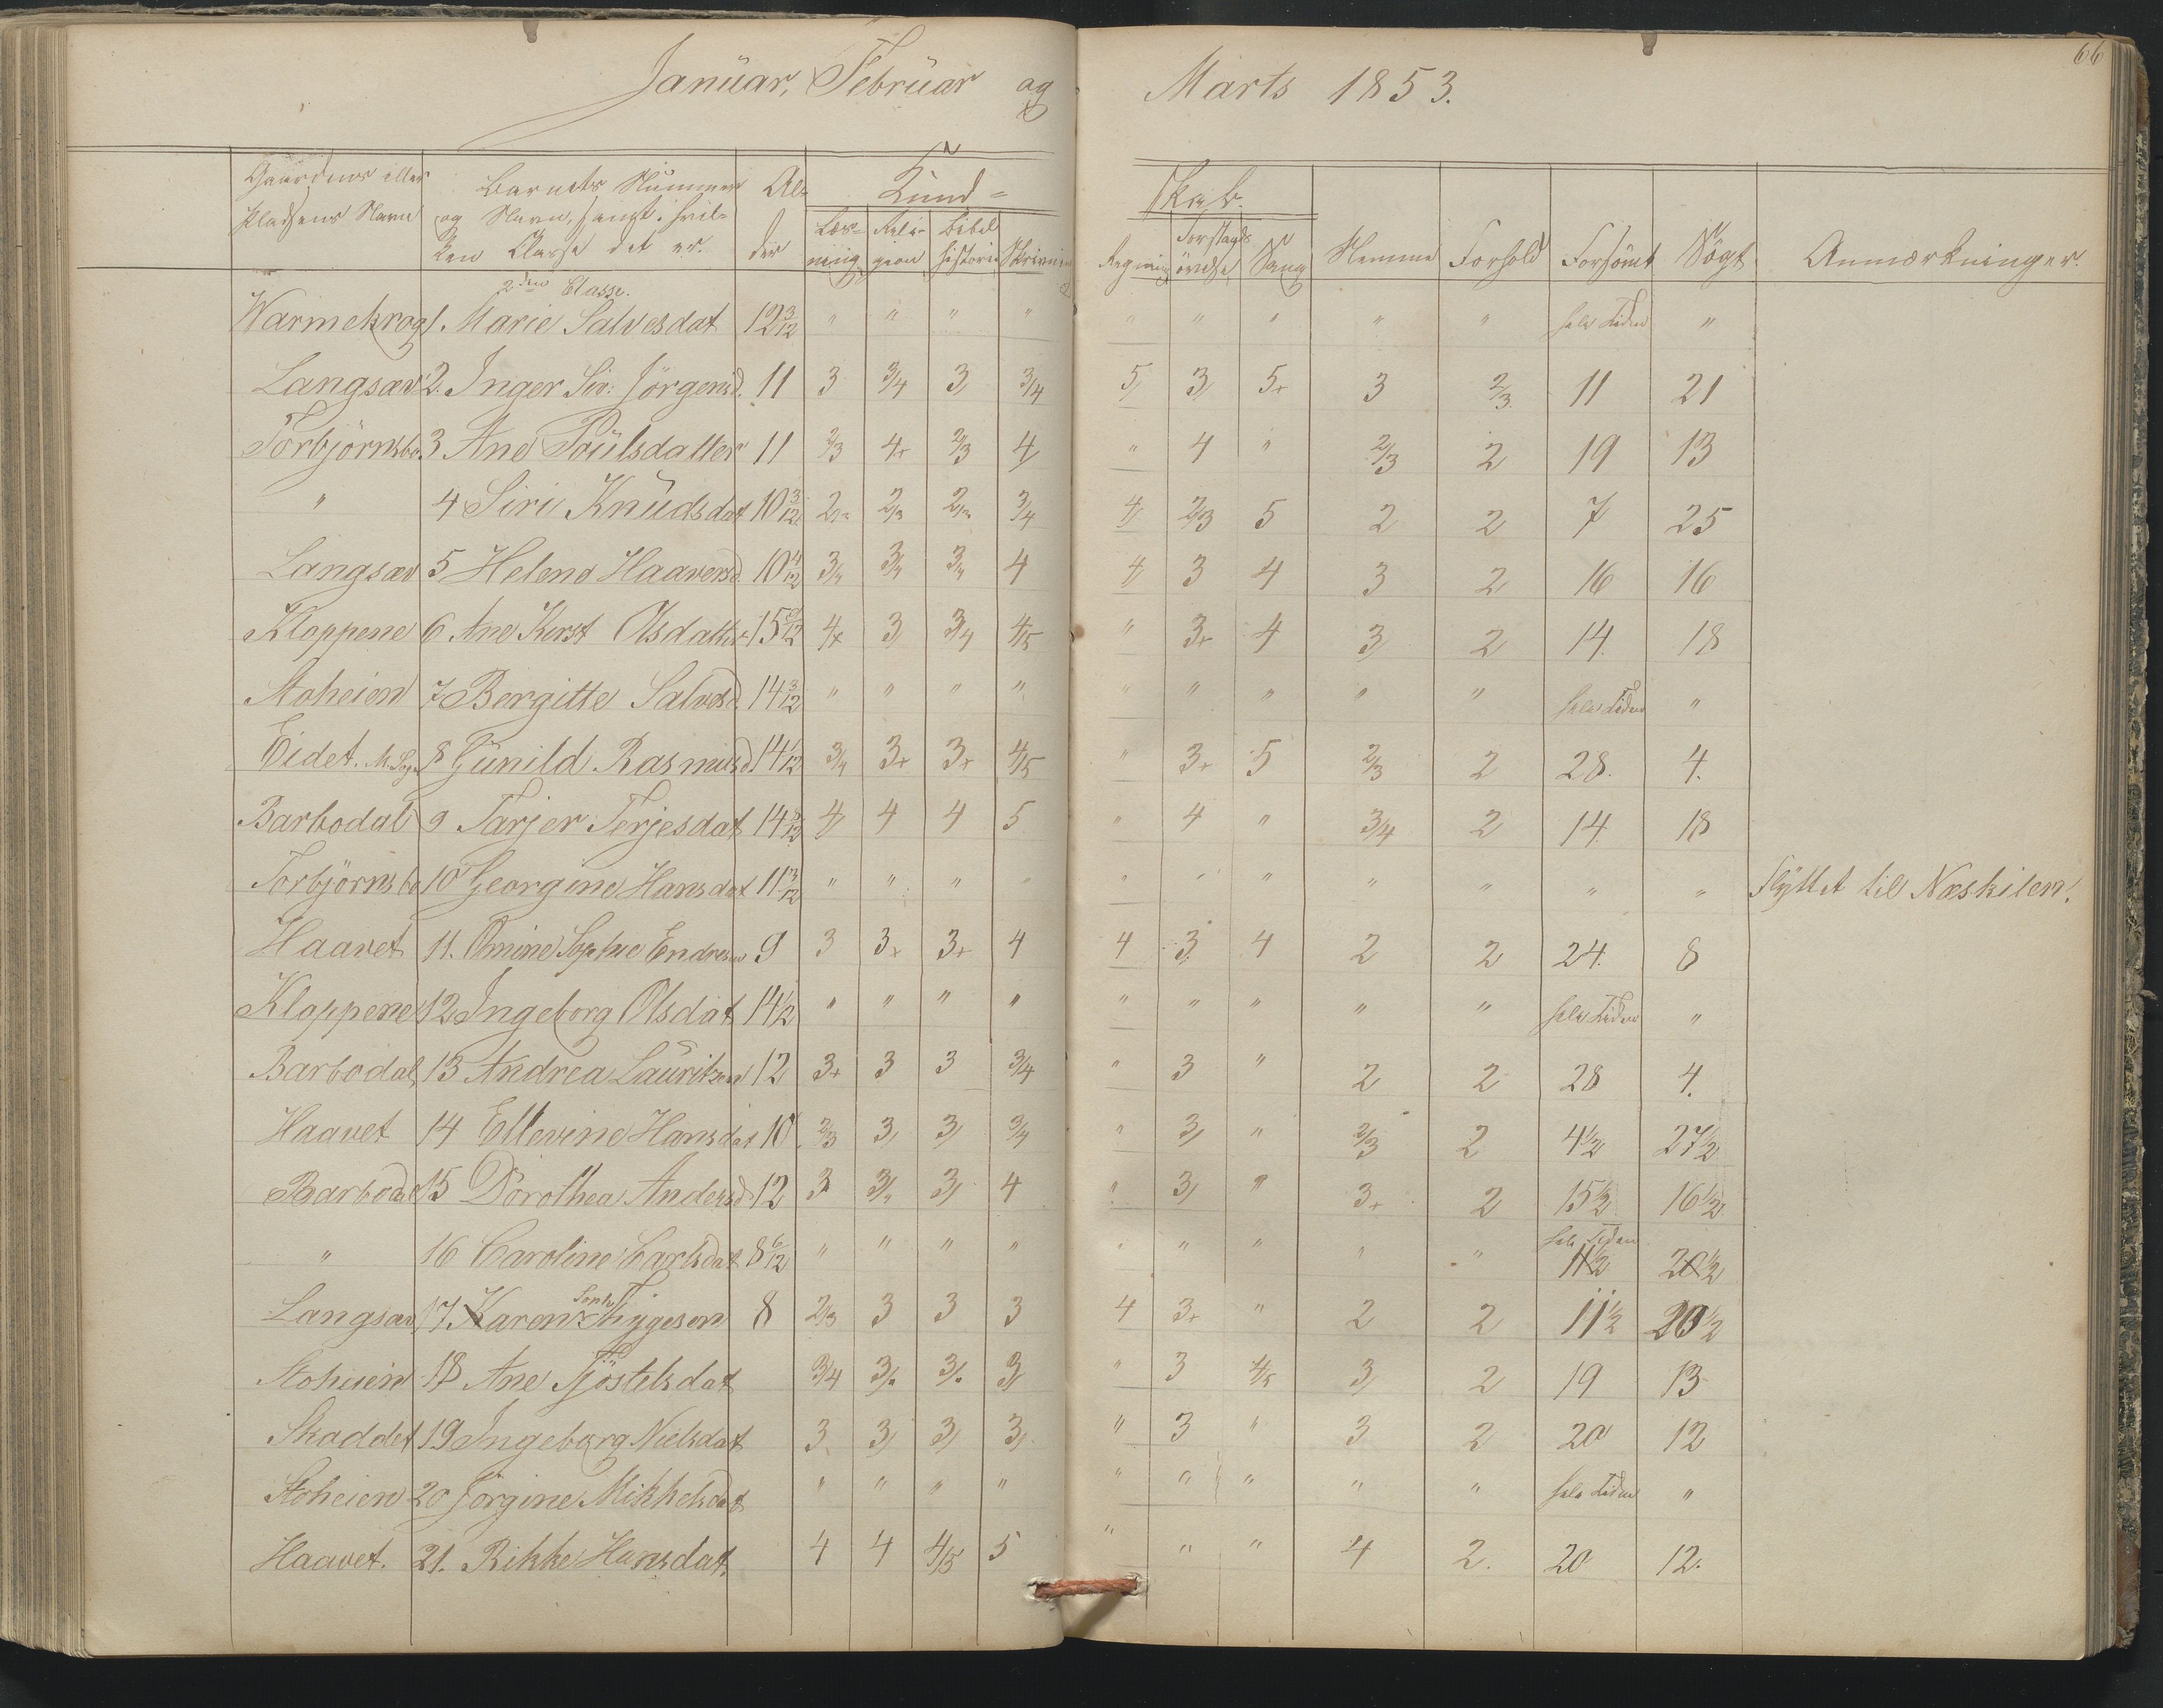 66
Januar, Februar og Marts 1853.
Gaardens eller Pladsens Navn
Barnets Nummer og Navn, samt i hvilken Classe det er.
Alder
Kundskab.
Læsning Religion Bibelhistorie Skrivning Regning Forstandsøvelse Sang Nemme Forhold Forsömt Sögt Anmærkninger.
2den Classe.
Warmekrog 1. Marie Salvesdat " " " " " " " " " hele Tiden "
Langsæv 2. Inger Jörgensd. 11 3 3/4 3/ 3/4 5/ 3/ 5+ 3 2/3 11 21
Torbjörnsbo 3 Ane Poulsdatter 11 2/3 4+ 2/3 4/ " 4 " 2/3 2 19 13
" 4 Siri Knudsdat 10 3/12 2/3 2/3 2/3 3/4 4/ 2/3 5 2 2 7 25
Langsæv 5 Helene Haaversd 10 4/12 3/4 3/4 3/4 4 4/ 3 4 3 2 16 16
Kloppene 6 Ane Kerst Olsdatter 4+ 3/ 3/4 4/5 " 3+ 4 3/ 2 14. 18
Stoheien 7 Bergitte Salvesd 14 3/12 " " " " " " " " " hele Tiden "
Eidet. 8 Gunild Rasmusd 14 1/12 3/4 3+ 3+ 4/5 " 3+ 5 2/3 2 28. 4.
Barbodal 9 Tarjer Terjesdat 4/ 4 4 5 " 4 " 3/4 2 14. 18
Torbjörnsbo 10 Georgine Hansdat 11 3/12 " " " " " " " " " " " Flyttet til Næskilen.
Haavet 11. Omine Sophie Endresen 9 3 3+ 3+ 4 4 3 4 2 2 24. 8
Kloppene 12 Ingeborg Olsdat 14 1/2 " " " " " " " " " hele Tiden "
Barbodal 13 Andrea Lauritzen 12 3+ 3 3 3/4 " 3 " 2 2 28 4.
Haavet 14 Ellevine Hansdat 10 2/3 3/ 3/ 3/4 " 3/ " 2/3 2 4 1/2 27 1/2
Barbodal 15 Dorothea Andersd 12 3 3/4 3/ 4 " 3/ " 3+ 2 15 1/2 16 1/2
" 16 Caroline Carlsdat 8 6/12 " " " " " " " " " hele Tiden 11 1/2 20 1/2
Langsæv 17. Karen Soph. Thygeson 8 2/3 3 3 3 4 3+ " 2 2 11 1/2 20 1/2
Stoheien 18 Ane Tjöstelsdat 3/4 3/ 3/ 3/ " 3 4/5 3/ 2 19 13
Skaddet 19 Ingeborg Nielsdat 3 3/ 3/ 3/ " 3 " 3 2 20 12
Stoheien 20 Jörgine Mikkelsdat " " " " " " " " " hele Tiden "
Haavet. 21. Rikke Hansdat. 4 4 4/5 5 " " " 4 2. 20 12.